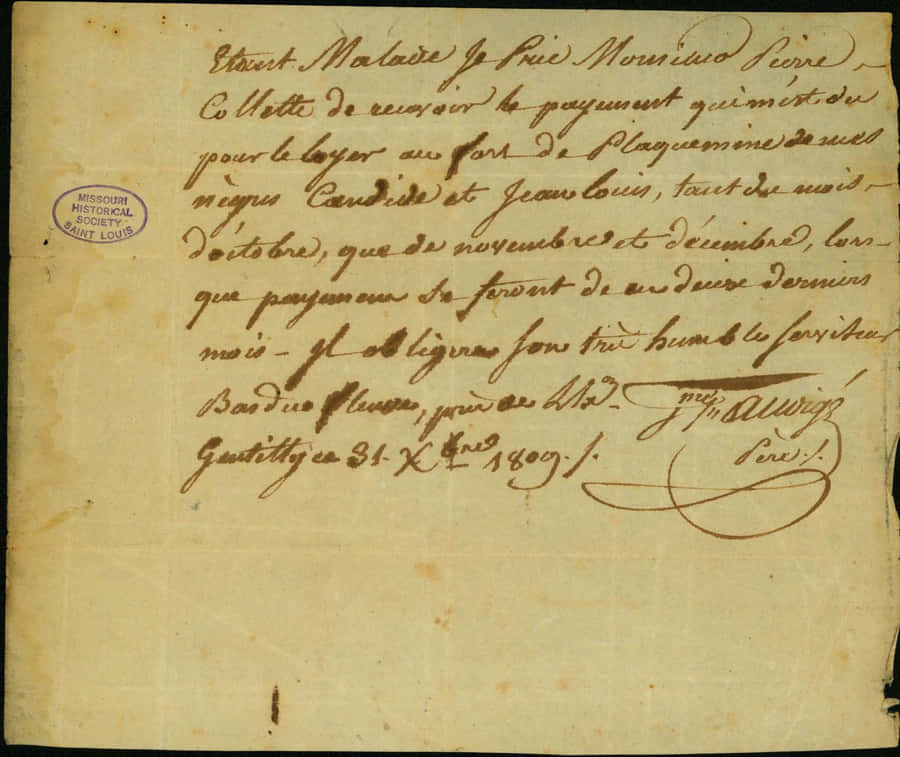 Etant Malade Je Prie Monsieur Pierre
Collette de recevoir le payement qui m'ést du
pour le loyer au fort de Plaquemine de mes
nègres Candide et Jean louis, tant du mois
d'óctobre, que de novembre et décembre, lors-
que payemens se feront de ces deux derniers
mois - Jl obligera son très humble serviteur
Bas du fleuve, près de
Gentilly ce 31. Xbre 1809./.
Père./.
MISSOURI
HISTORICAL
SOCIETY
SAINT LOUIS